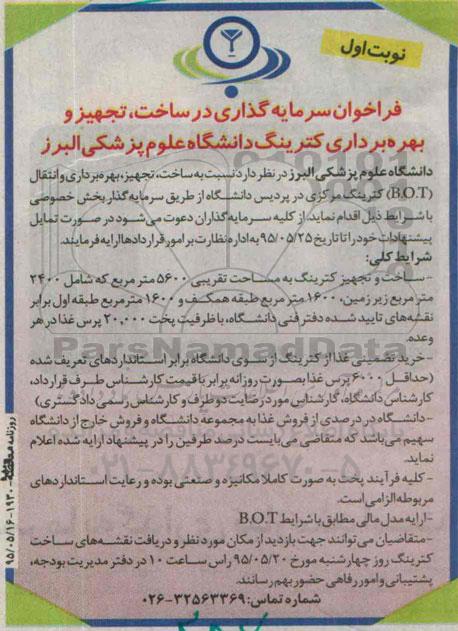 نوبت اول
فراخوان سرمایه گذاری در ساخت، تجهیز و
بهره برداری کترینگ دانشگاه علوم پزشکی البرز
دانشگاه علوم پزشکی البرز در نظر دارد نسبت به ساخت، تجهیز، بهره برداری و انتقال
(B.O.T) کترینگ مرکزی در پردیس دانشگاه از طریق سرمایه گذار بخش خصوصی
با شرایط ذیل اقدام نماید. از کلیه سرمایه گذاران دعوت می شود در صورت تمایل
پیشنهادات خود را تا تاریخ ۹۵/۰۵/۲۵ به اداره نظارت بر امور قراردادها ارایه فرمایند.
شرایط کلی:
- ساخت و تجهیز کترینگ به مساحت تقریبی ۵۶۰۰ متر مربع که شامل ۲۴۰۰
متر مربع زیر زمین، ۱۶۰۰ متر مربع طبقه همکف و ۱۶۰۰ متر مربع طبقه اول برابر
نقشه های تایید شده دفتر فنی دانشگاه، با ظرفیت پخت ۲۰,۰۰۰ پرس غذا در هر
وعده.
- خرید تضمینی غذا از کترینگ از سوی دانشگاه برابر استانداردهای تعریف شده
(حداقل ۶۰۰۰ پرس غذا بصورت روزانه برابر با قیمت کارشناس طرف قرارداد،
کارشناس دانشگاه، کارشناس مورد رضایت دو طرف و کارشناس رسمی دادگستری)
- دانشگاه در درصدی از فروش غذا به مجموعه دانشگاه و فروش خارج از دانشگاه
سهیم می باشد که متقاضی می بایست درصد طرفین را در پیشنهاد ارایه شده اعلام
نماید.
- کلیه فرآیند پخت به صورت کاملا مکانیزه و صنعتی بوده و رعایت استانداردهای
مربوطه الزامی است.
- ارایه مدل مالی مطابق با شرایط B.O.T
- متقاضیان می توانند جهت بازدید از مکان مورد نظر و دریافت نقشه های ساخت
کترینگ روز چهارشنبه مورخ ۹۵/۰۵/۲۰ راس ساعت ۱۰ در دفتر مدیریت بودجه،
پشتیبانی و امور رفاهی حضور بهم رسانند.
شماره تماس: ۳۲۵۶۳۳۶۹-۰۲۶
ParsNamadData
۰۲۱-۸۸۳۴۹۶۷۰-۵
روزنامه ۱۹۳۰ - ۹۵/۰۵/۱۶